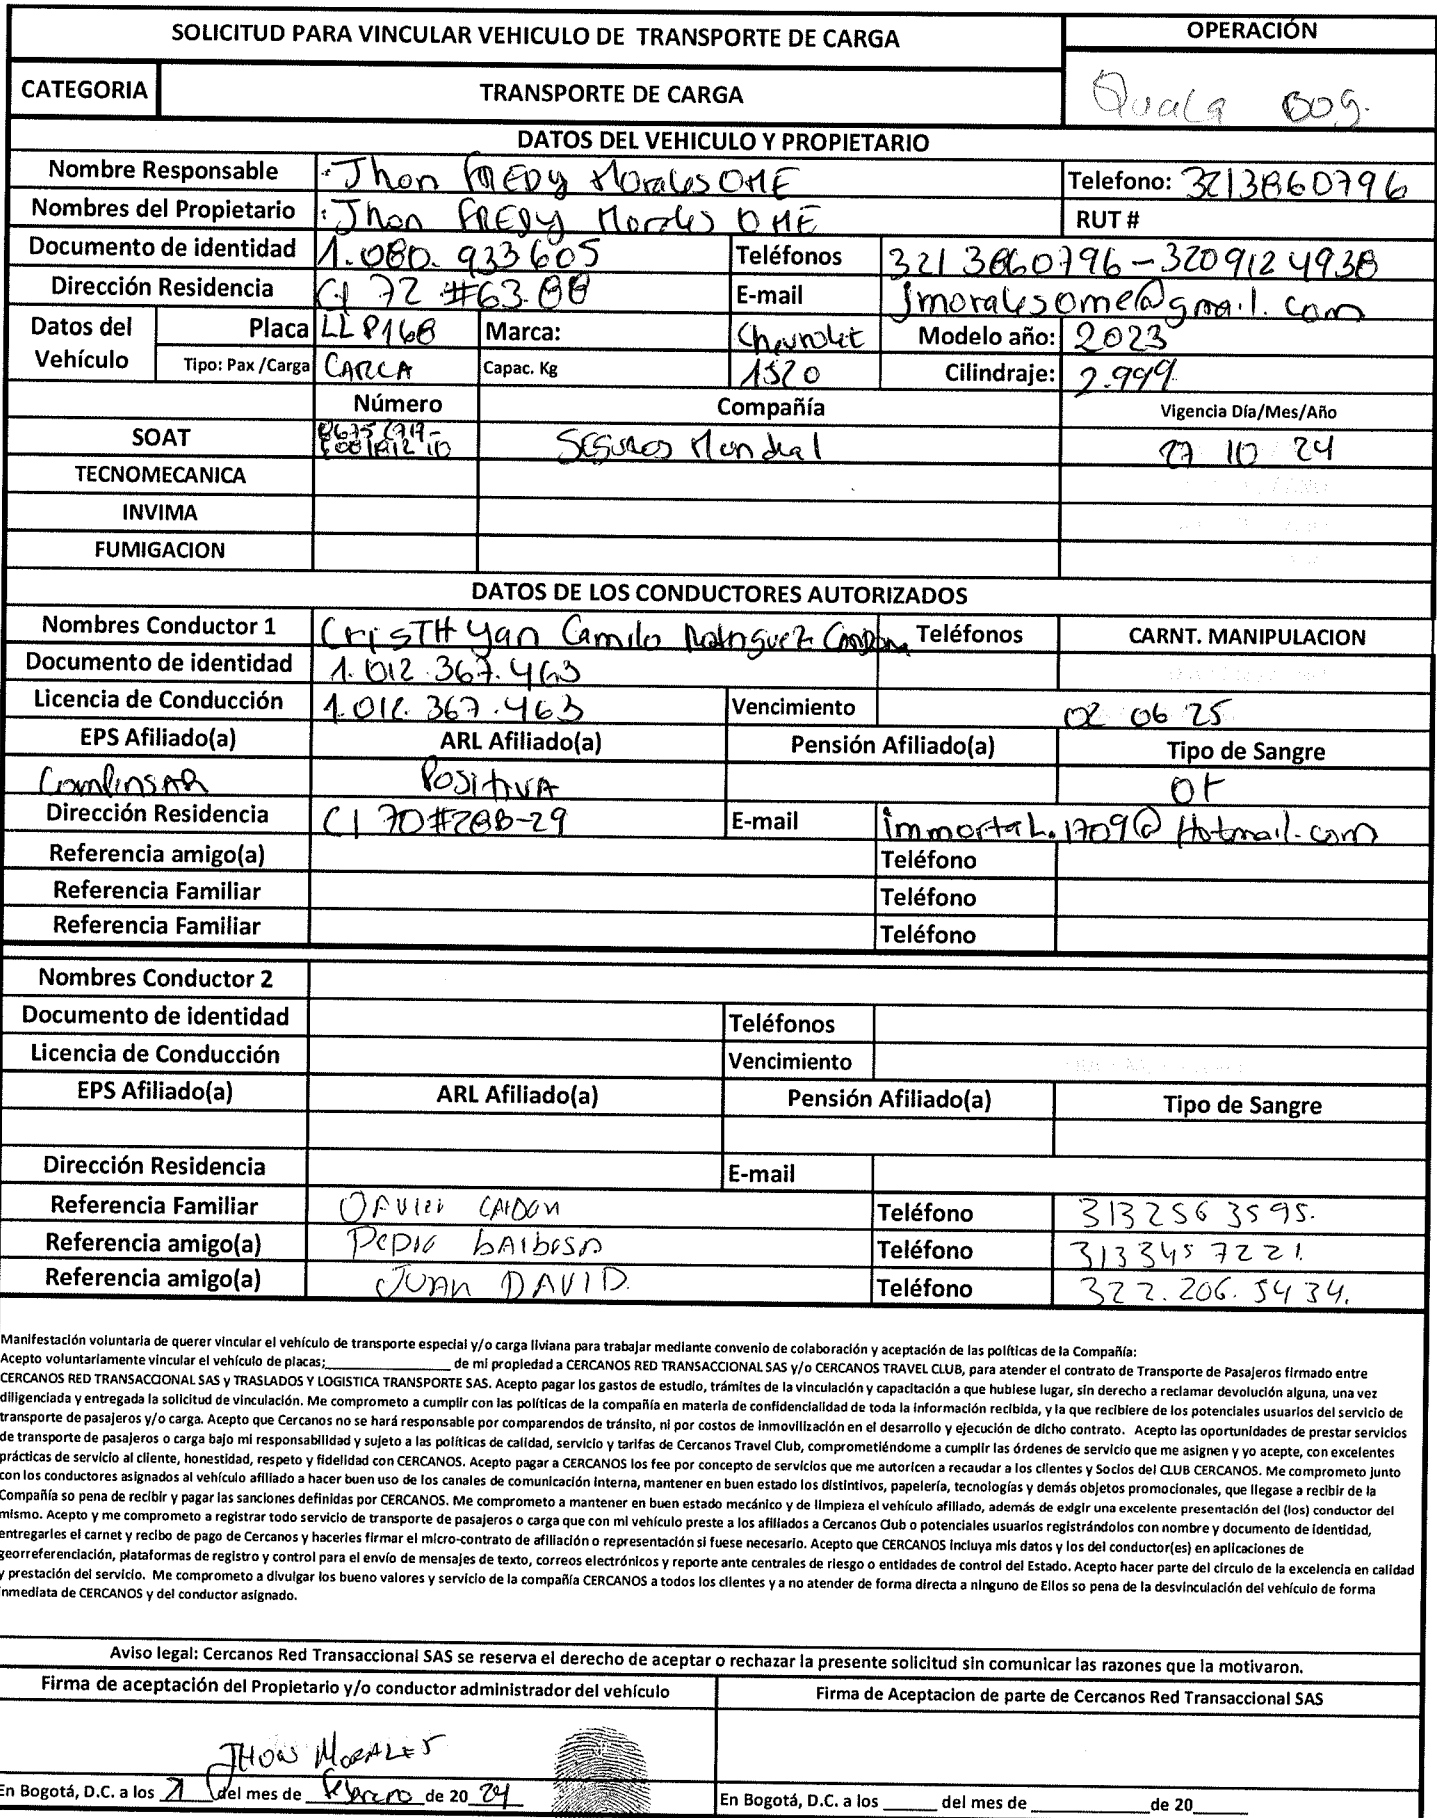 SOLICITUD PARA VINCULAR VEHICULO DE TRANSPORTE DE CARGA
OPERACIÓN
CATEGORIA
TRANSPORTE DE CARGA
Quala BOG.
DATOS DEL VEHICULO Y PROPIETARIO
Nombre Responsable Jhon FREDY Morales OME Telefono: 3213860796
Nombres del Propietario : Jhon FREDY Morales OME RUT #
Documento de identidad 1.080.933605 Teléfonos 3213860796-3209124938
Dirección Residencia Cl 72 #63.88 E-mail jmoralesome@gmail.com
Datos del Vehículo Placa LLP168 Marca: Chevrolet Modelo año: 2023
Tipo: Pax /Carga CARGA Capac. Kg 1520 Cilindraje: 2.999
Número Compañía Vigencia Día/Mes/Año
SOAT Seguros Mondial 27 10 24
TECNOMECANICA
INVIMA
FUMIGACION
DATOS DE LOS CONDUCTORES AUTORIZADOS
Nombres Conductor 1 CrisTHyan Camilo Rodriguez Teléfonos CARNT. MANIPULACION
Documento de identidad 1.012.367.463
Licencia de Conducción 1.012.367.463 Vencimiento 02 06 25
EPS Afiliado(a) ARL Afiliado(a) Pensión Afiliado(a) Tipo de Sangre
POSITIVA O+
Dirección Residencia Cl 70#28B-29 E-mail immortal.1709@Hotmail.com
Referencia amigo(a) Teléfono
Referencia Familiar Teléfono
Referencia Familiar Teléfono
Nombres Conductor 2
Documento de identidad Teléfonos
Licencia de Conducción Vencimiento
EPS Afiliado(a) ARL Afiliado(a) Pensión Afiliado(a) Tipo de Sangre
Dirección Residencia E-mail
Referencia Familiar Teléfono 313 256 3595.
Referencia amigo(a) Pedro bArbosA Teléfono 313 345 7221.
Referencia amigo(a) JUAN DAVID. Teléfono 322.206.5434.
Manifestación voluntaria de querer vincular el vehículo de transporte especial y/o carga liviana para trabajar mediante convenio de colaboración y aceptación de las políticas de la Compañía:
Acepto voluntariamente vincular el vehículo de placas;____________________ de mi propiedad a CERCANOS RED TRANSACCIONAL SAS y/o CERCANOS TRAVEL CLUB, para atender el contrato de Transporte de Pasajeros firmado entre
CERCANOS RED TRANSACCIONAL SAS y TRASLADOS Y LOGISTICA TRANSPORTE SAS. Acepto pagar los gastos de estudio, trámites de la vinculación y capacitación a que hubiese lugar, sin derecho a reclamar devolución alguna, una vez
diligenciada y entregada la solicitud de vinculación. Me comprometo a cumplir con las políticas de la compañía en materia de confidencialidad de toda la información recibida, y la que recibiere de los potenciales usuarios del servicio de
transporte de pasajeros y/o carga. Acepto que Cercanos no se hará responsable por comparendos de tránsito, ni por costos de inmovilización en el desarrollo y ejecución de dicho contrato. Acepto las oportunidades de prestar servicios
de transporte de pasajeros o carga bajo mi responsabilidad y sujeto a las políticas de calidad, servicio y tarifas de Cercanos Travel Club, comprometiéndome a cumplir las órdenes de servicio que me asignen y yo acepte, con excelentes
prácticas de servicio al cliente, honestidad, respeto y fidelidad con CERCANOS. Acepto pagar a CERCANOS los fee por concepto de servicios que me autoricen a recaudar a los clientes y Socios del CLUB CERCANOS. Me comprometo junto
con los conductores asignados al vehículo afiliado a hacer buen uso de los canales de comunicación interna, mantener en buen estado los distintivos, papelería, tecnologías y demás objetos promocionales, que llegase a recibir de la
Compañía so pena de recibir y pagar las sanciones definidas por CERCANOS. Me comprometo a mantener en buen estado mecánico y de limpieza el vehículo afiliado, además de exigir una excelente presentación del (los) conductor del
mismo. Acepto y me comprometo a registrar todo servicio de transporte de pasajeros o carga que con mi vehículo preste a los afiliados a Cercanos Club o potenciales usuarios registrándolos con nombre y documento de identidad,
entregarles el carnet y recibo de pago de Cercanos y hacerles firmar el micro-contrato de afiliación o representación si fuese necesario. Acepto que CERCANOS incluya mis datos y los del conductor(es) en aplicaciones de
georreferenciación, plataformas de registro y control para el envío de mensajes de texto, correos electrónicos y reporte ante centrales de riesgo o entidades de control del Estado. Acepto hacer parte del circulo de la excelencia en calidad
y prestación del servicio. Me comprometo a divulgar los bueno valores y servicio de la compañía CERCANOS a todos los clientes y a no atender de forma directa a ninguno de Ellos so pena de la desvinculación del vehículo de forma
inmediata de CERCANOS y del conductor asignado.
Aviso legal: Cercanos Red Transaccional SAS se reserva el derecho de aceptar o rechazar la presente solicitud sin comunicar las razones que la motivaron.
Firma de aceptación del Propietario y/o conductor administrador del vehículo
Firma de Aceptacion de parte de Cercanos Red Transaccional SAS
JHON MORALES
En Bogotá, D.C. a los 21 del mes de febrero de 20 24
En Bogotá, D.C. a los ______ del mes de ______________de 20______